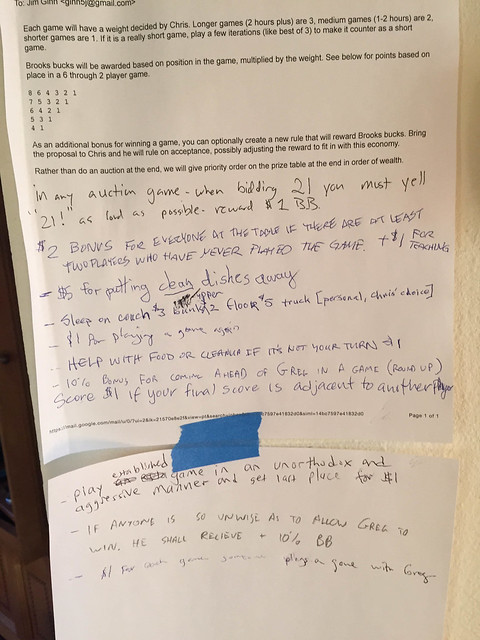 To: Jim Ginn <ginnbj@gmail.com>
Each game will have a weight decided by Chris. Longer games (2 hours plus) are 3, medium games (1-2 hours) are 2,
shorter games are 1. If it is a really short game, play a few iterations (like best of 3) to make it counter as a short
game.
Brooks bucks will be awarded based on position in the game, multiplied by the weight. See below for points based on
place in a 6 through 2 player game.
8 6 4 3 2 1
7 5 3 2 1
6 4 2 1
5 3 1
4 1
As an additional bonus for winning a game, you can optionally create a new rule that will reward Brooks bucks. Bring
the proposal to Chris and he will rule on acceptance, possibly adjusting the reward to fit in with this economy.
Rather than do an auction at the end, we will give priority order on the prize table at the end in order of wealth.
In any auction game - when bidding 21 you must yell
"21!" as loud as possible - reward $1 BB.
$2 BONUS FOR EVERYONE AT THE TABLE IF THERE ARE AT LEAST
TWO PLAYERS WHO HAVE NEVER PLAYED THE GAME. +$1 FOR
TEACHING
- $5 for putting clean dishes away
- Sleep on couch $3 upper bunk $2 floor $5 truck [personal, chris' choice]
- $1 For playing a game
- HELP WITH FOOD OR CLEANUP IF IT'S NOT YOUR TURN $1
- 10% BONUS FOR COMING AHEAD OF GREG IN A GAME (ROUND UP)
Score $1 if your final score is adjacent to another player
Page 1 of 1
- play established game in an unorthodox and
aggressive manner and get last place for $1
- IF ANYONE IS SO UNWISE AS TO ALLOW GREG TO
WIN. HE SHALL RECIEVE + 10% BB
- $1 For each game someone plays a game with Greg